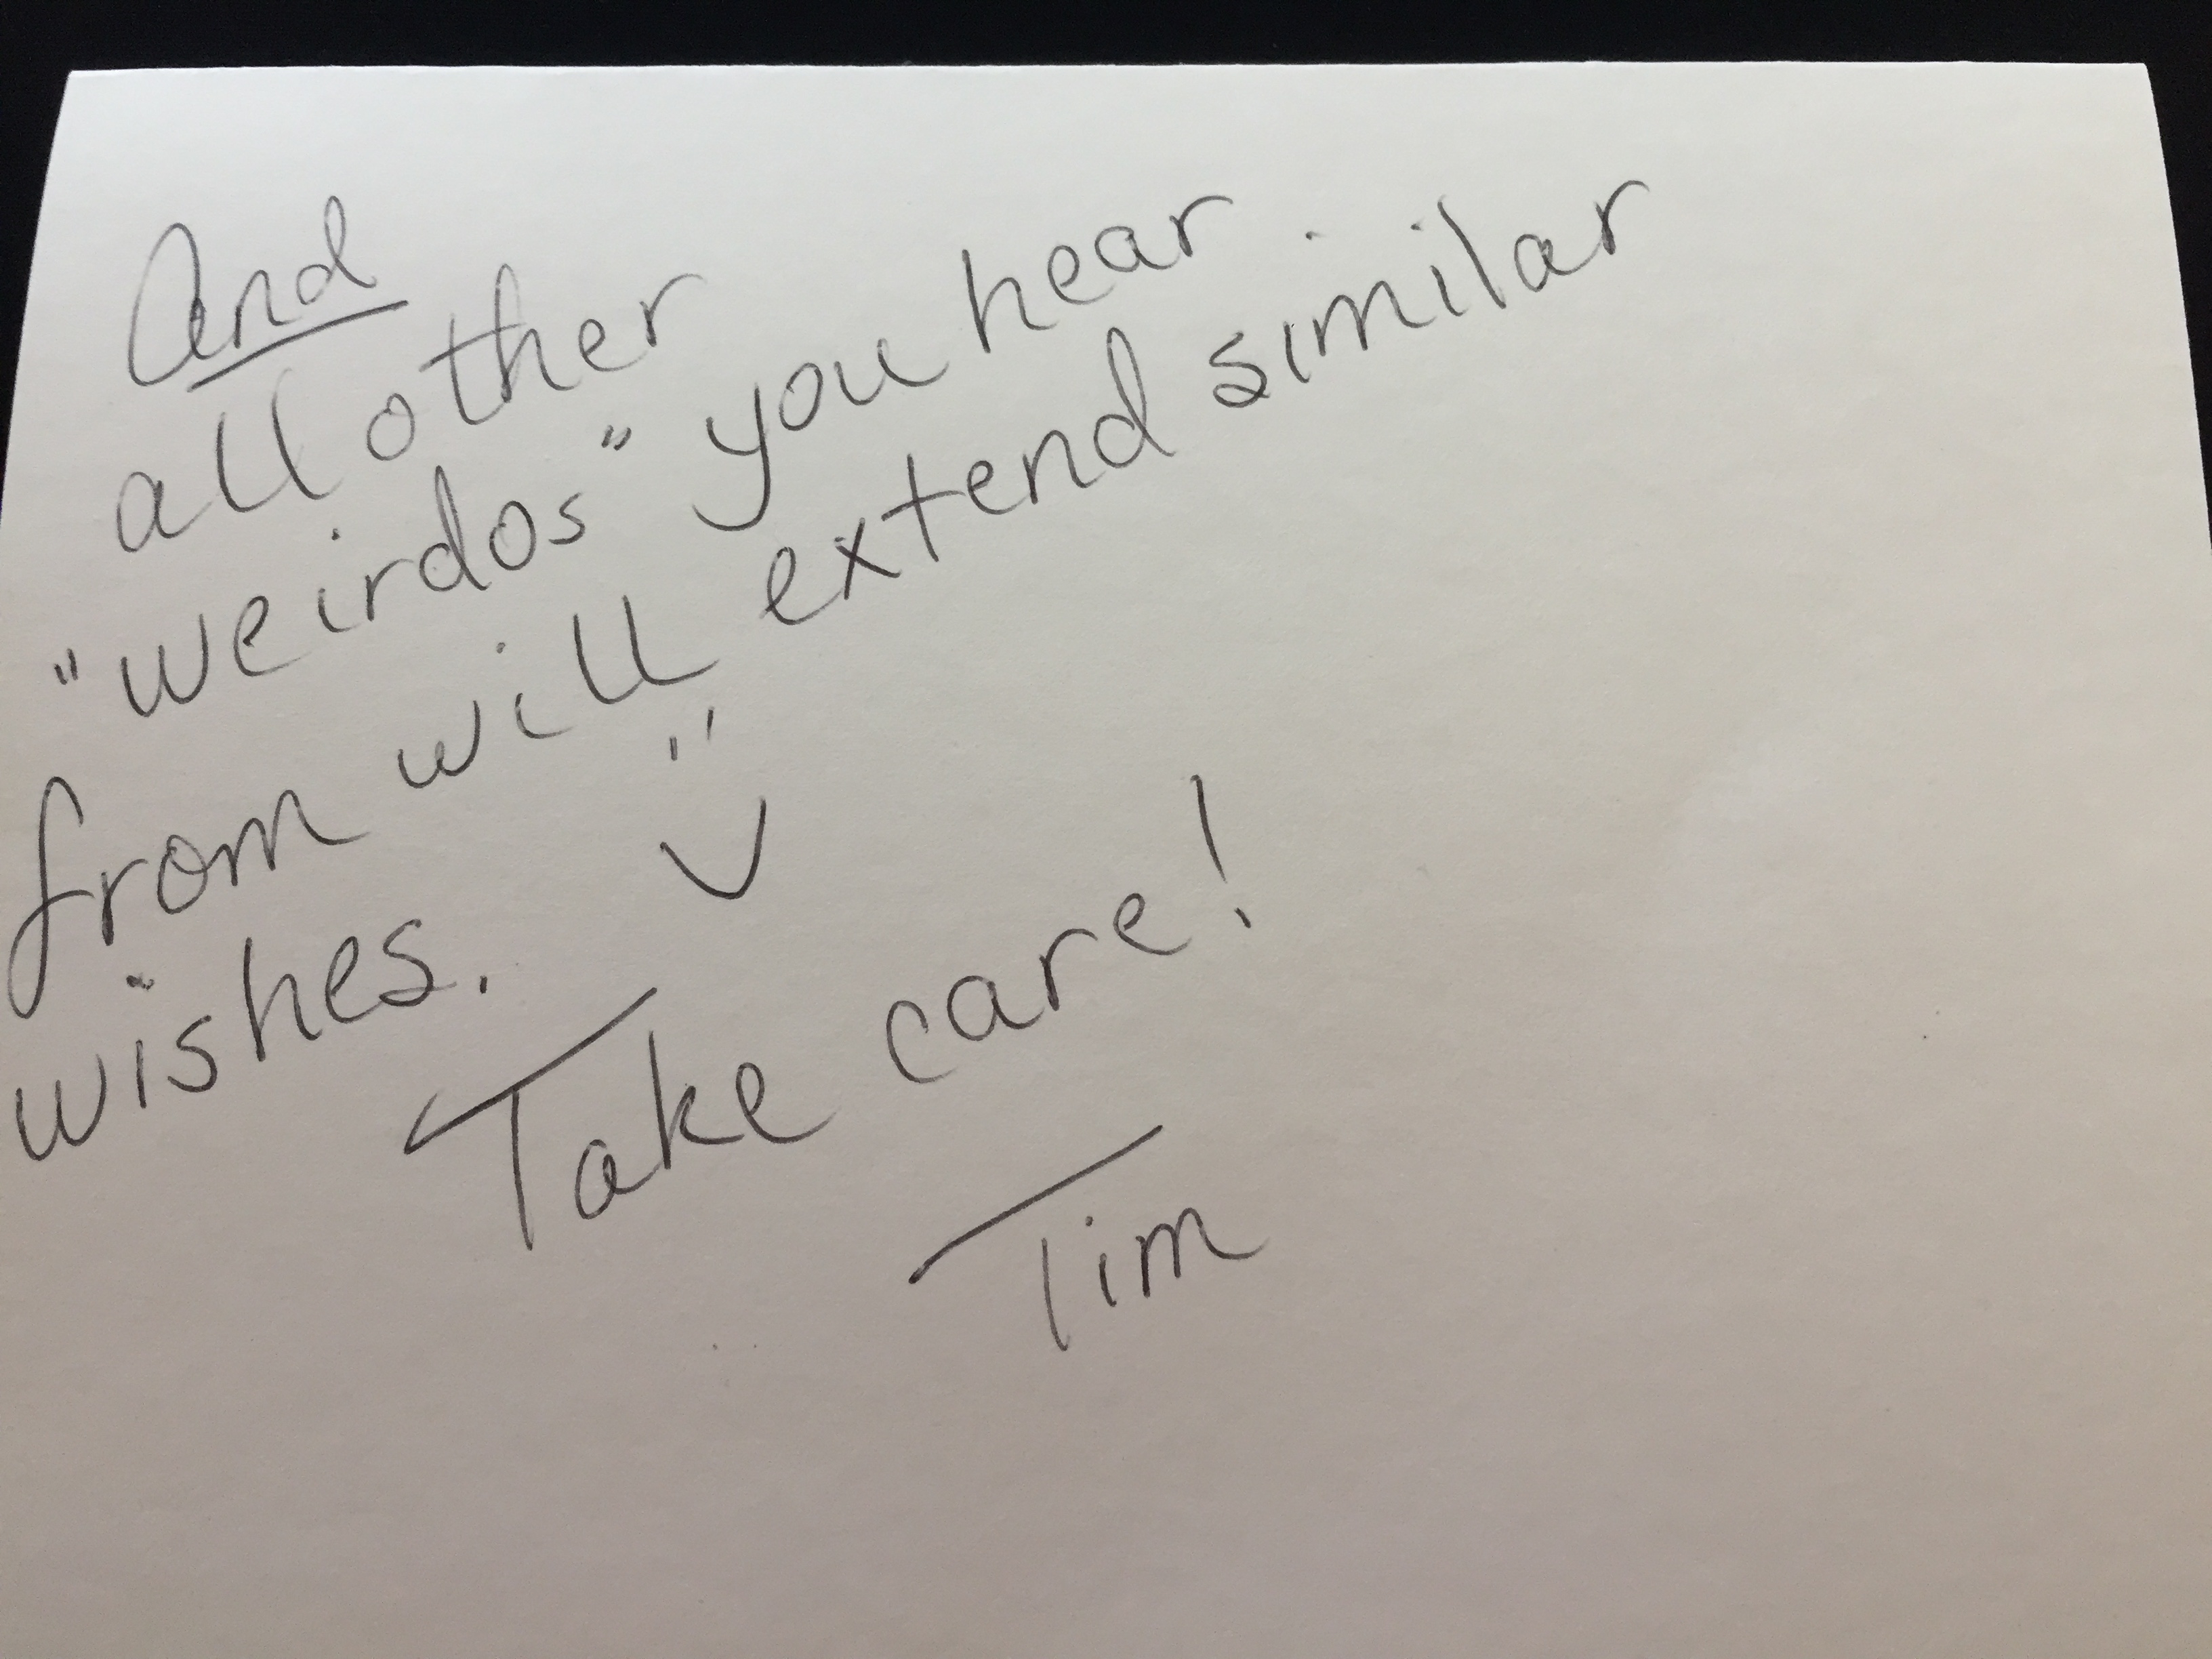 And
all other
"weirdos" you hear
from will extend similar
wishes.
Take care!
Tim